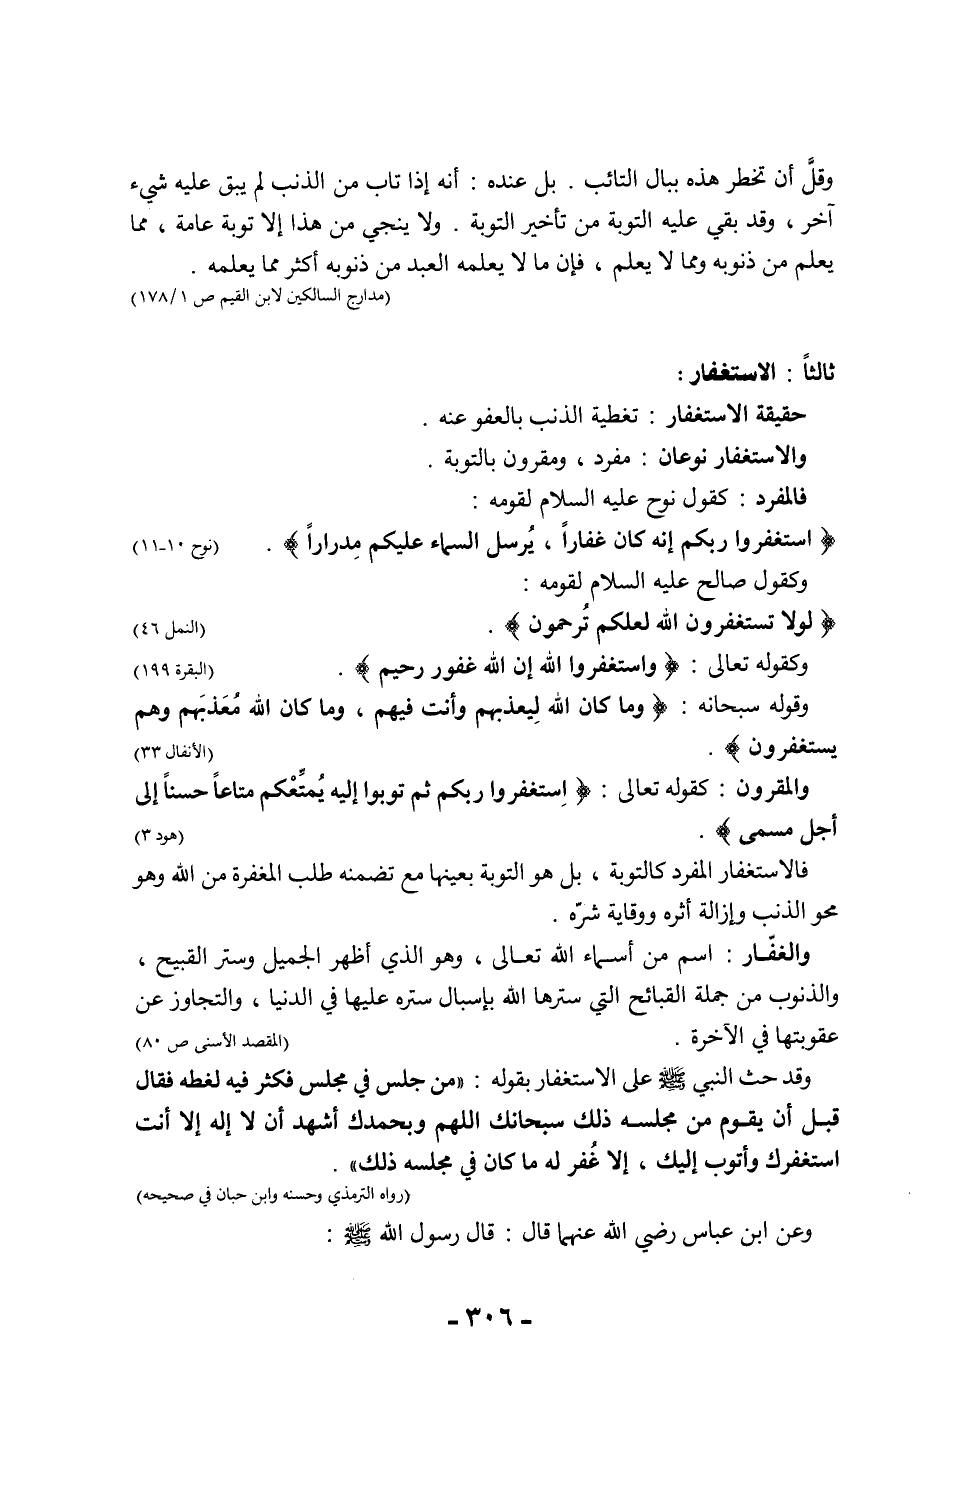 وقلَّ أن تخطر هذه ببال التائب . بل عنده : أنه إذا تاب من الذنب لم يبق عليه شيء
آخر ، وقد بقي عليه التوبة من تأخير التوبة . ولا ينجي من هذا إلا توبة عامة ، مما
يعلم من ذنوبه ومما لا يعلم ، فإن ما لا يعلمه العبد من ذنوبه أكثر مما يعلمه .
(مدارج السالكين لابن القيم ص ١/١٧٨)
ثالثاً : الاستغفار :
حقيقة الاستغفار : تغطية الذنب بالعفو عنه .
والاستغفار نوعان : مفرد ، ومقرون بالتوبة .
فالمفرد : كقول نوح عليه السلام لقومه :
﴿ استغفروا ربكم إنه كان غفاراً ، يُرسل السماء عليكم مِدراراً ﴾ . (نوح ١٠-١١)
وكقول صالح عليه السلام لقومه :
﴿ لولا تستغفرون الله لعلكم تُرحمون ﴾ . (النمل ٤٦)
وكقوله تعالى : ﴿ واستغفروا الله إن الله غفور رحيم ﴾ . (البقرة ١٩٩)
وقوله سبحانه : ﴿ وما كان الله لِيعذبهم وأنت فيهم ، وما كان الله مُعَذبَهم وهم
يستغفرون ﴾ . (الأنفال ٣٣)
والمقرون : كقوله تعالى : ﴿ اِستغفروا ربكم ثم توبوا إليه يُمتِّعْكم متاعاً حسناً إلى
أجل مسمى ﴾ . (هود ٣)
فالاستغفار المفرد كالتوبة ، بل هو التوبة بعينها مع تضمنه طلب المغفرة من الله وهو
محو الذنب وإزالة أثره ووقاية شرّه .
والغفّـار : اسم من أسـماء الله تعـالى ، وهو الذي أظهر الجميل وستر القبيح ،
والذنوب من جملة القبائح التي سترها الله بإسبال ستره عليها في الدنيا ، والتجاوز عن
عقوبتها في الآخرة . (المقصد الأسنى ص ٨٠)
وقد حث النبي ﷺ على الاستغفار بقوله : «من جلس في مجلس فكثر فيه لغطه فقال
قبـل أن يقـوم من مجلسـه ذلك سبحانك اللهم وبحمدك أشهد أن لا إله إلا أنت
استغفرك وأتوب إليك ، إلا غُفر له ما كان في مجلسه ذلك» .
(رواه الترمذي وحسنه وابن حبان في صحيحه)
وعن ابن عباس رضي الله عنهما قال : قال رسول الله ﷺ :
- ٣٠٦ -